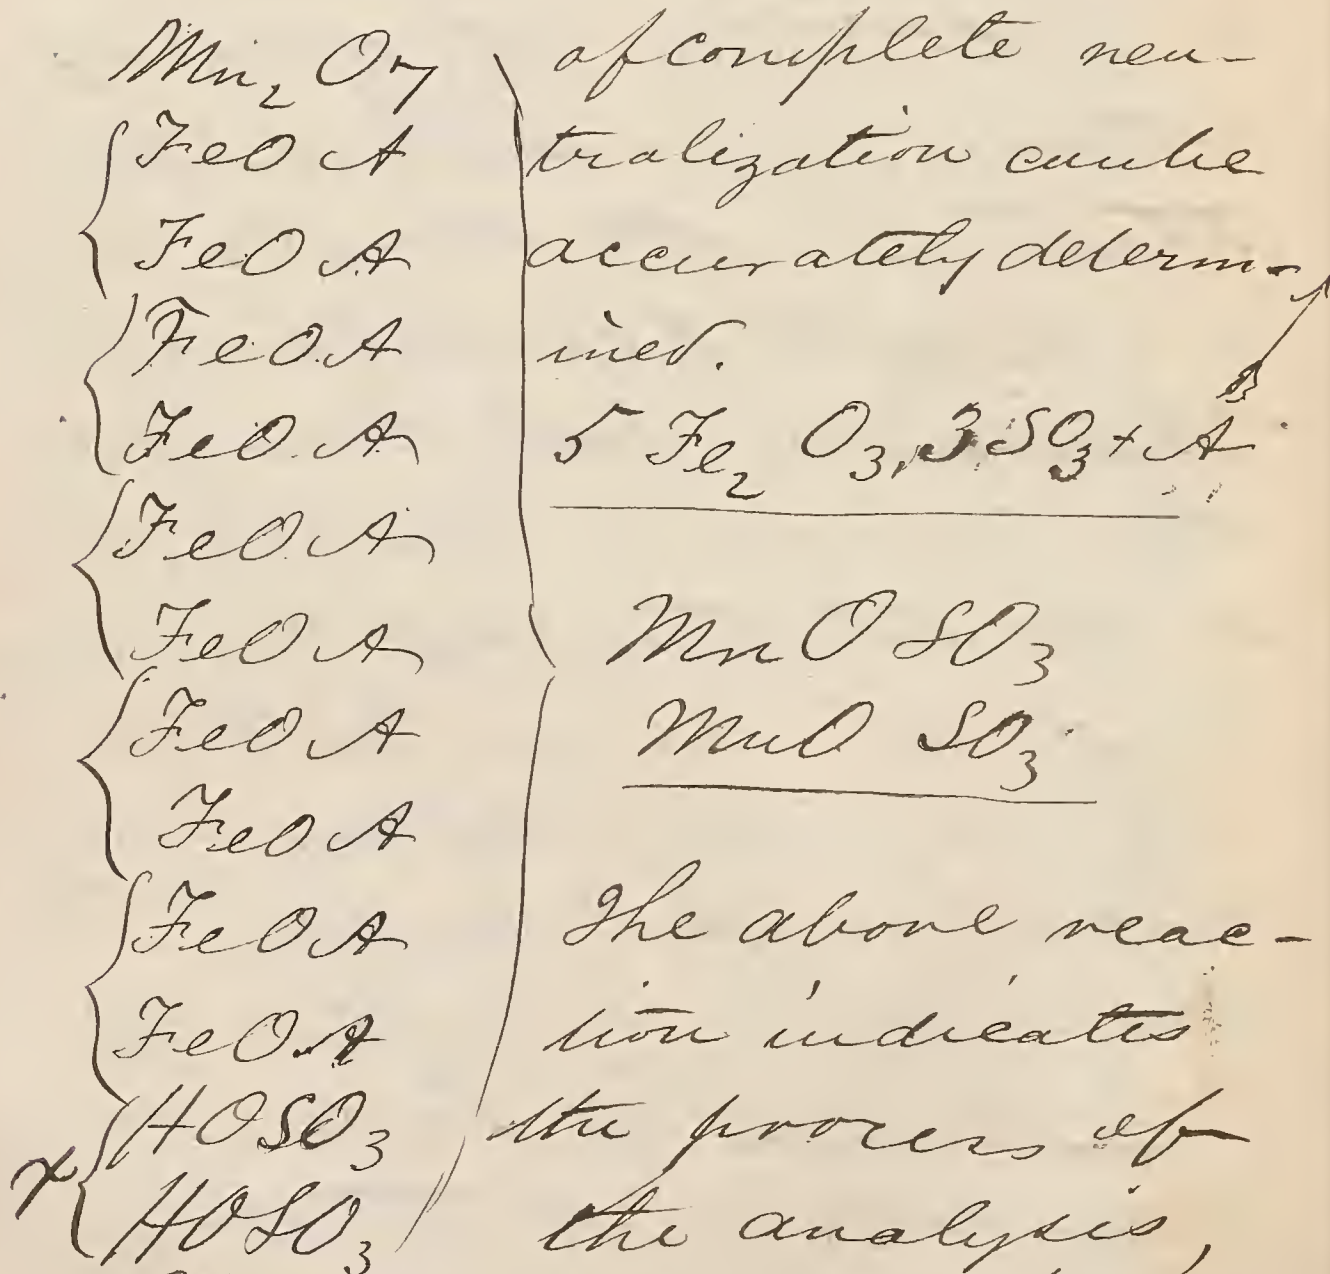 Mn₂ O₇
FeO A
FeO A
FeO. A
FeO. A
FeO. A
FeO A
FeO A
FeO A
FeO A
FeO. A
HOSO₃
x HOSO₃
of complete neu-
tralization can be
accurately determ-
ined.
5 Fe₂ O₃, 3 SO₃ + A
MnO SO₃
MnO SO₃
The above reac-
tion indicates
the process of
the analysis,